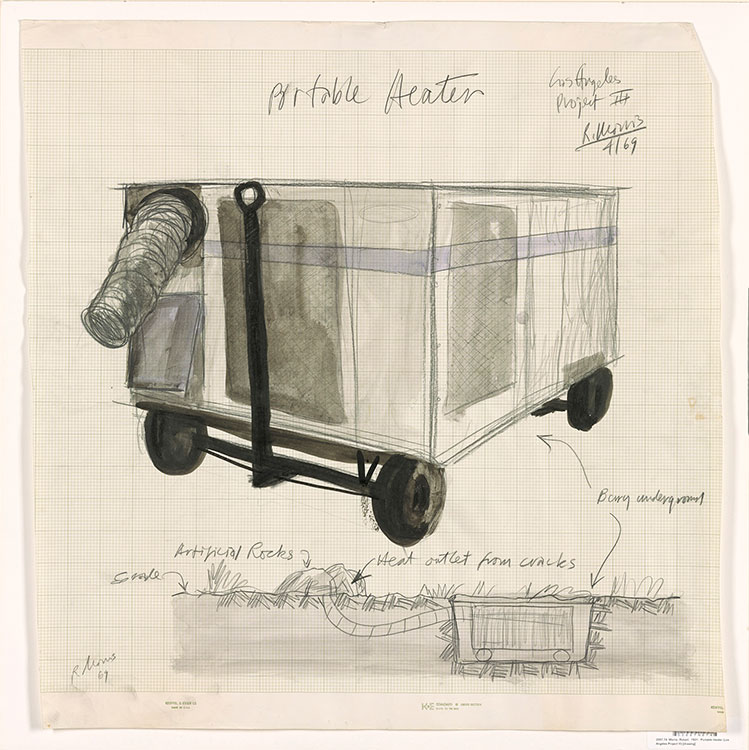 Portable Heater
Los Angeles
Project III
R. Morris
4/69
Bury underground
Artificial Rocks
Heat outlet from cracks
Grade
R. Morris
69
K+E